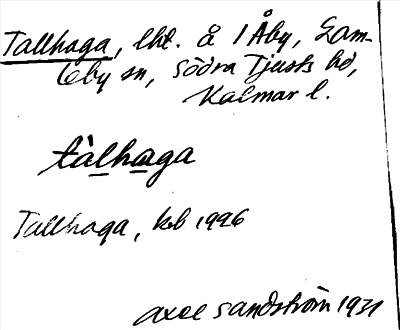 Tallhaga, lht. å 1 Åby, Gam-
leby sn, Södra Tjusts hd,
Kalmar l.
tàlhaga
Tallhaga, kb 1996
Axel Sandström 1931